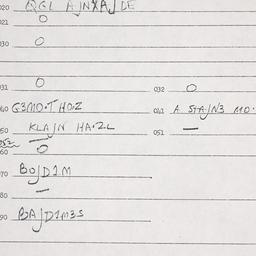 020 QGL AJNXAJLE
021 O
030 O
031 O 032 O
040 G3MO·T HO·Z 041 A STAJN3 MO·
050 KLAJN HA·2L 051 —
052 —
060 O
070 BOJD1M
080 —
090 BAJD1M3S